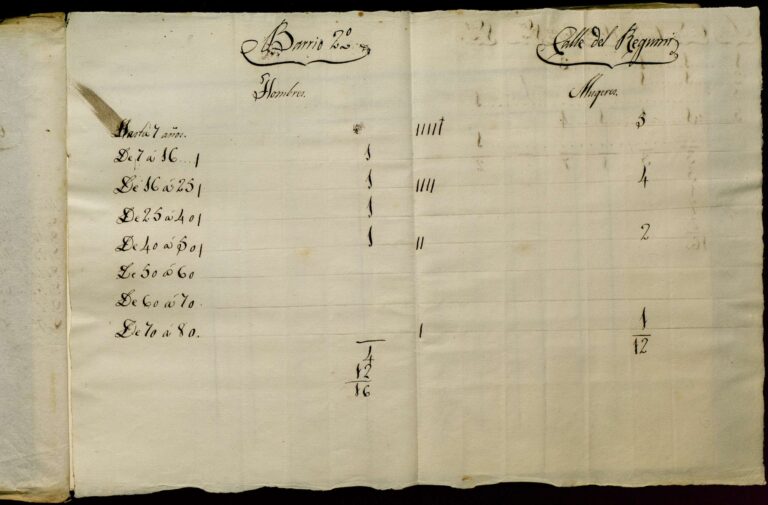 Barrio 2º Calle del Reguini
Hombres. Mugeres.
Hasta 7 años. 5
De 7 á 16 1
De 16 á 25 1 4
De 25 á 40 1
De 40 á 50 1 2
De 50 á 60
De 60 á 70
De 70 á 80. 1
4 12
12
16